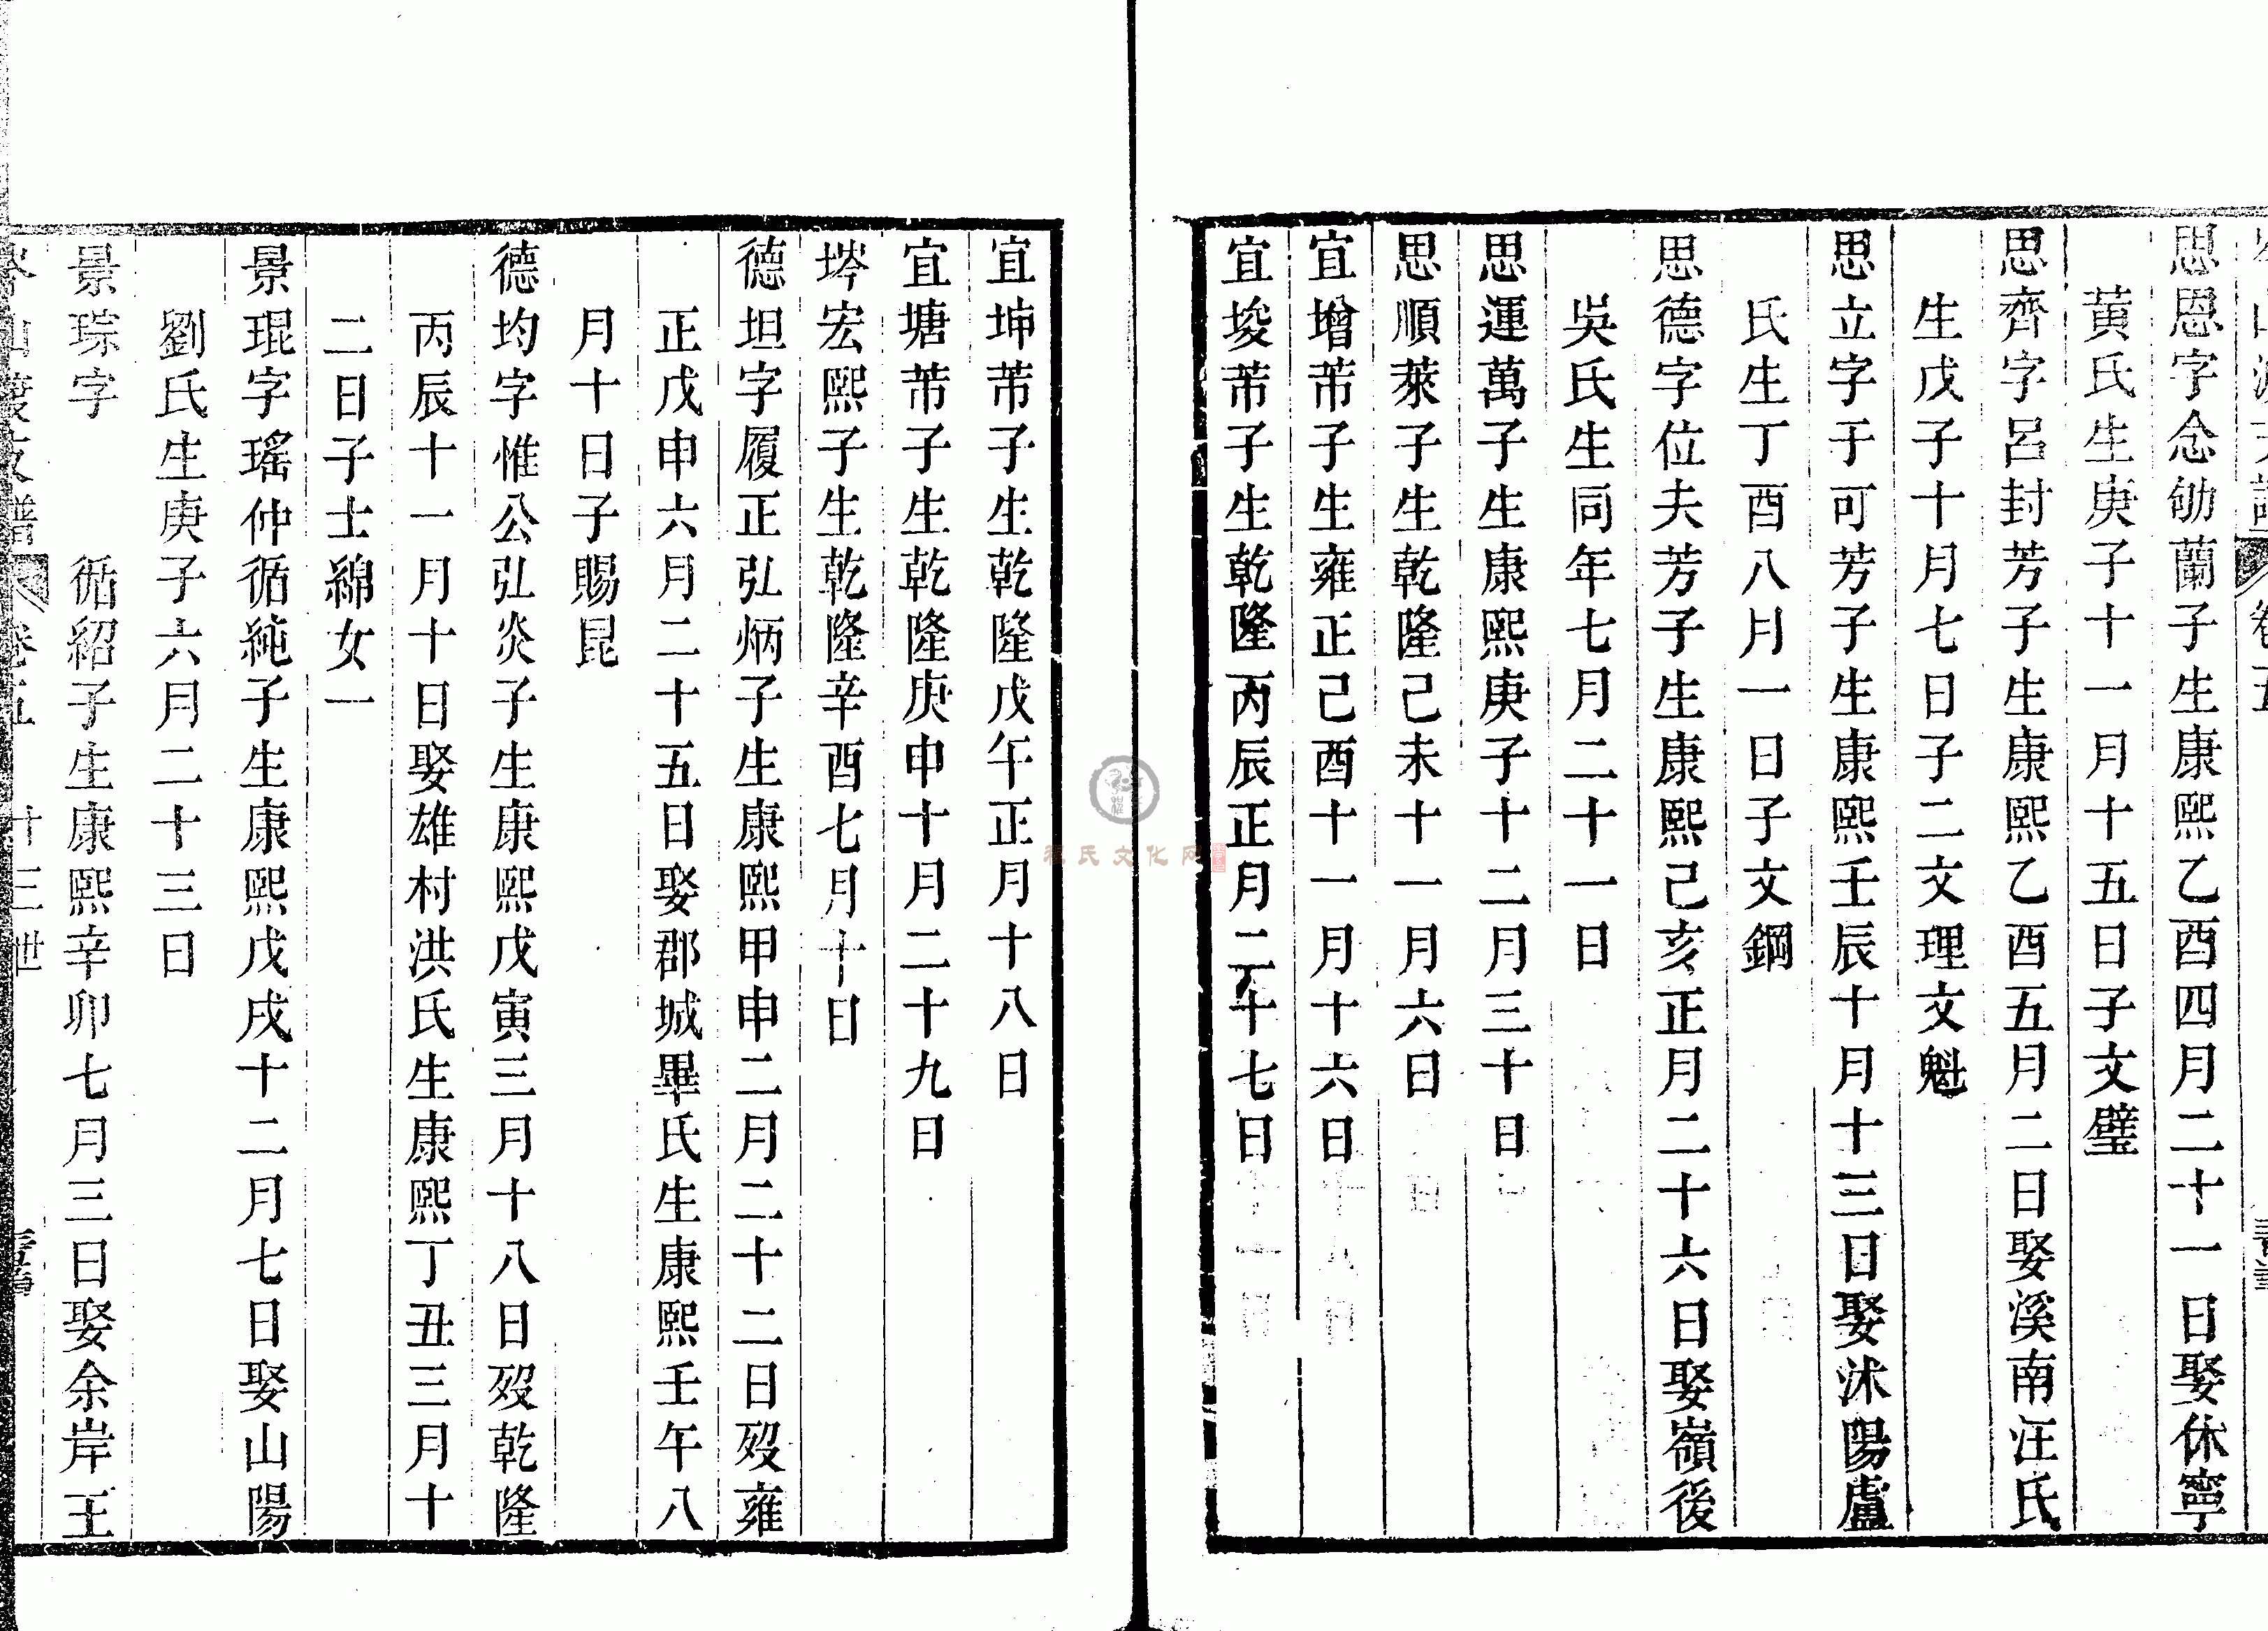 思恩字念劬蘭子生康熙乙酉四月二十一日娶休寧
黃氏生庚子十一月十五日子文璧
思齊字呂封芳子生康熙乙酉五月二日娶溪南汪氏
生戊子十月七日子二文理文魁
思立字于可芳子生康熙壬辰十月十三日娶沭陽盧
氏生丁酉八月一日子文鋼
思德字位夫芳子生康熙己亥正月二十六日娶嶺後
吳氏生同年七月二十一日
思運萬子生康熙庚子十二月三十日
思順萊子生乾隆己未十一月六日
宜增芾子生雍正己酉十一月十六日
宜埈芾子生乾隆丙辰正月二十七日
宜坤芾子生乾隆戊午正月十八日
宜塘芾子生乾隆庚申十月二十九日
埁宏熙子生乾隆辛酉七月十日
德坦字履正弘炳子生康熙甲申二月二十二日歿雍
正戊申六月二十五日娶郡城畢氏生康熙壬午八
月十日子賜昆
德均字惟公弘炎子生康熙戊寅三月十八日歿乾隆
丙辰十一月十日娶雄村洪氏生康熙丁丑三月十
二日子士綿女一
景琨字瑤仲循純子生康熙戊戌十二月七日娶山陽
劉氏生庚子六月二十三日
景琮字 循紹子生康熙辛卯七月三日娶余岸王
程氏文化网